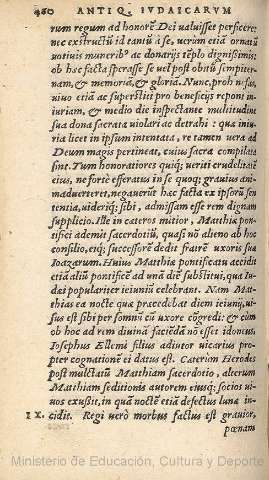 460 ANTIQ. IVDAICARVM
rum regum ad honorē Dei valuisset perficere:
nec exstructū id tantū à se, verùm etiā ornatū
uotiuis munerib' ac donarijs tēplo dignissimis:
ob hæc facta sperasse se uel post obitū sempiter-
nam, & memoriā, & gloriā. Nunc, proh nefas,
uiuo etiā ac superstiti pro beneficijs reponi in-
iuriam, & medio die inspectante multitudine
sua dona sacrata violari ac detrahi: qua iniu-
ria licet in ipsum intentata, re tamen uera ad
Deum magis pertineat, cuius sacra compilata
sint. Tum honoratiores quiq; veriti crudelitatē
eius, ne forte efferatus in se quoq; grauius ani-
maduerteret, negauerūt hæc facta ex ipsorū sen-
tentia, uideriq; sibi, admissam esse rem dignam
supplicio. Ille in cæteros mitior, Matthiæ pon-
tifici ademit sacerdotiū, quasi nō alieno ab hoc
consilio, eiq; successorē dedit fratrē uxoris suæ
Ioazarum. Huius Matthiæ pontificatu accidit
etiā aliū pontificē ad unā diē substitui, qua Iu-
dæi populariter ieiuniū celebrant. Nam Mat-
thias ea nocte quæ præcedebat diem ieiunij, ui-
sus est sibi per somniū cū uxore cōgredi: & cùm
ob hoc ad rem diuinā faciēdā nō esset idoneus,
Iosephus Ellemi filius adiutor uicarius prop-
ter cognationē ei datus est. Cæterùm Herodes
post mulctatū Matthiam sacerdotio, alterum
Matthiam seditionis autorem eiusq; socios ui-
uos exussit, in qua nocte etiā defectus lunæ in-
IX. cidit. Regi uerò morbus factus est grauior,
pœnam
Ministerio de Educación, Cultura y Deporte